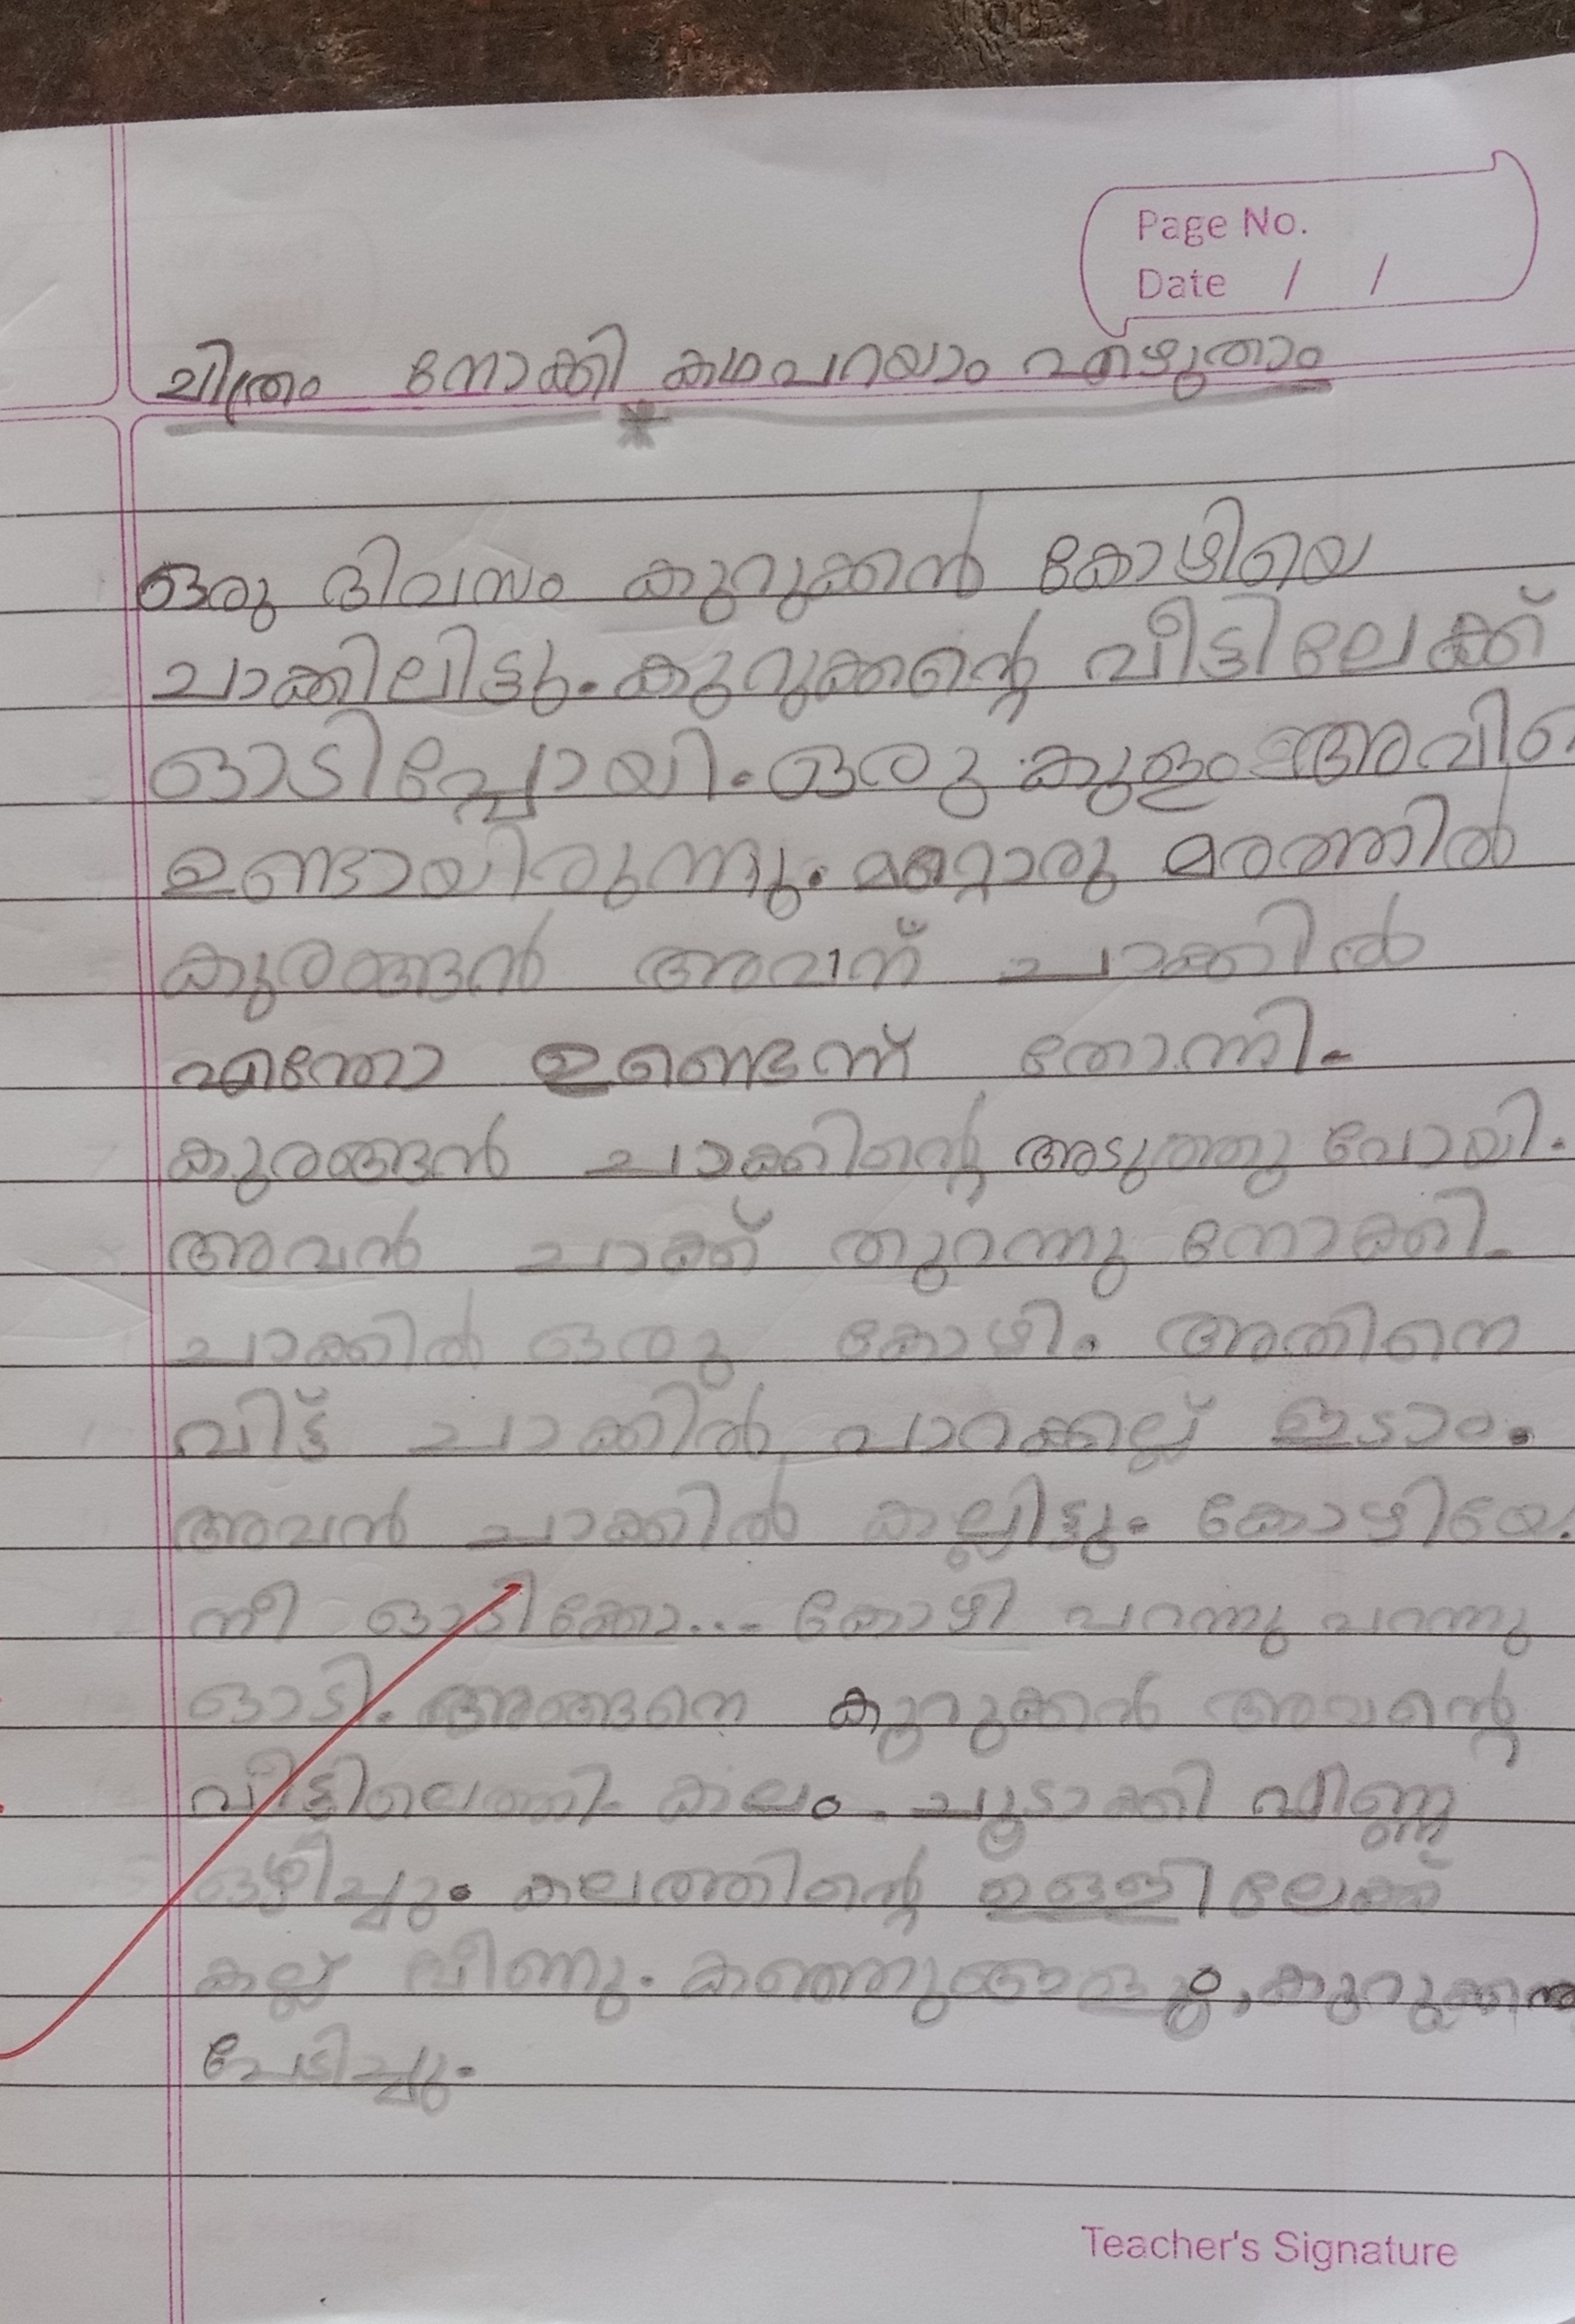 Page No.
Date / /
ചിത്രം നോക്കി കഥപറയാം എഴുതാം
ഒരു ദിവസം കുറുക്കൻ കോഴിയെ
ചാക്കിലിട്ടു. കുറുക്കന്റെ വീട്ടിലേക്ക്
ഓടിപ്പോയി. ഒരു കുളം
ഉണ്ടായിരുന്നു. മറ്റൊരു മരത്തിൽ
കുരങ്ങൻ അവന് ചാക്കിൽ
എന്തോ ഉണ്ടെന്ന് തോന്നി.
കുരങ്ങൻ ചാക്കിന്റെ അടുത്തു പോയി.
അവൻ ചാക്ക് തുറന്നു നോക്കി.
ചാക്കിൽ ഒരു കോഴി. അതിനെ
വിട്ട് ചാക്കിൽ പാറക്കല്ല് ഇടാം.
അവൻ ചാക്കിൽ കല്ലിട്ടു. കോഴിയേ.
നീ ഓടിക്കോ... കോഴി പറന്നു പറന്നു
ഓടി. അങ്ങനെ കുറുക്കൻ അവന്റെ
വീട്ടിലെത്തി. കലം. ചൂടാക്കി എണ്ണ
ഒഴിച്ചു. കലത്തിന്റെ ഉള്ളിലേക്ക്
കല്ല് വീണു.
പേടിച്ചു.
Teacher's Signature